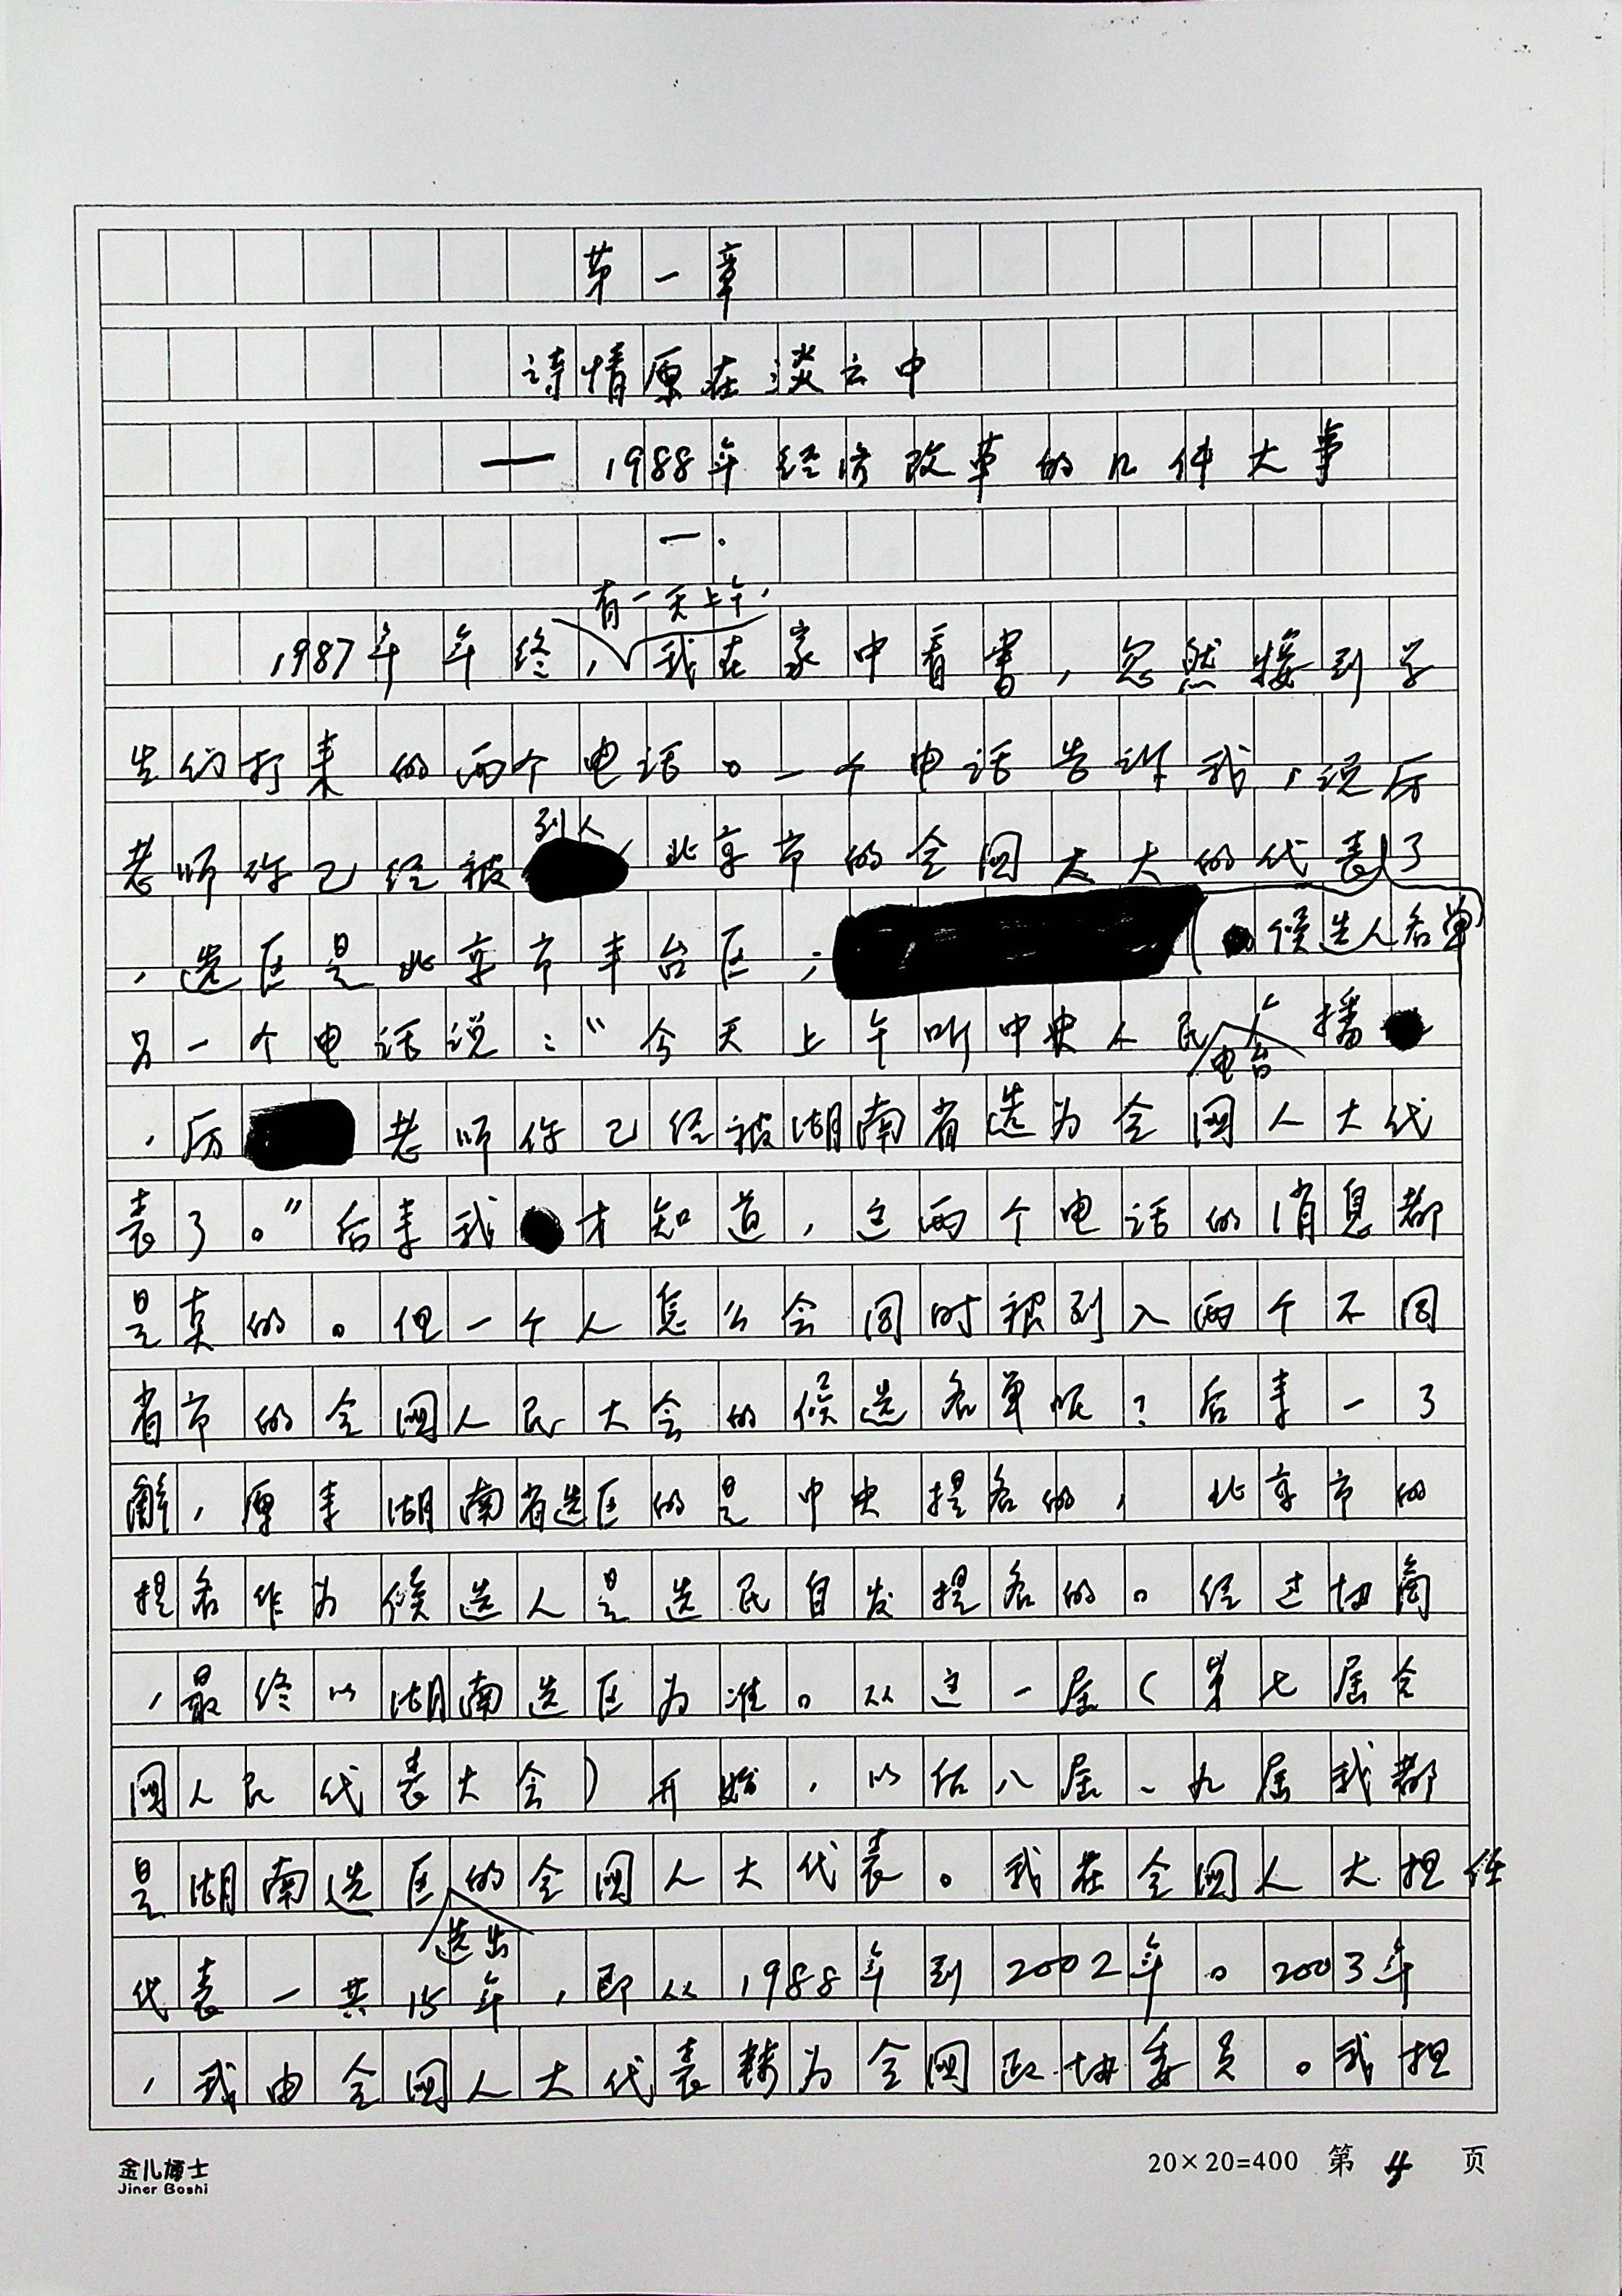 第一章
诗情原在淡云中
——1988年经济改革的几件大事
一.
有一天上午,
1987年年终,我在家中看书,忽然接到学
生们打来的两个电话。一个电话告诉我,说厉
列入
老师你已经被北京市的全国人大的代表了
候选人名单
,选区是北京市丰台区;
另一个电话说:“今天上午听中央人民广播
电台
,厉老师你已经被湖南省选为全国人大代
表了。”后来我才知道,这两个电话的消息都
是真的。但一个人怎么会同时被列入两个不同
省市的全国人民大会的候选名单呢?后来一了
解,原来湖南省选区的是中央提名的,北京市的
提名作为候选人是选民自发提名的。经过协商
,最终以湖南选区为准。从这一届(第七届全
国人民代表大会)开始,以后八届、九届我都
是湖南选区的全国人大代表。我在全国人大担任
选出
代表一共15年,即从1988年到2002年。2003年
,我由全国人大代表转为全国政协委员。我担
金儿博士
Jiner Boshi
20×20=400 第 4 页